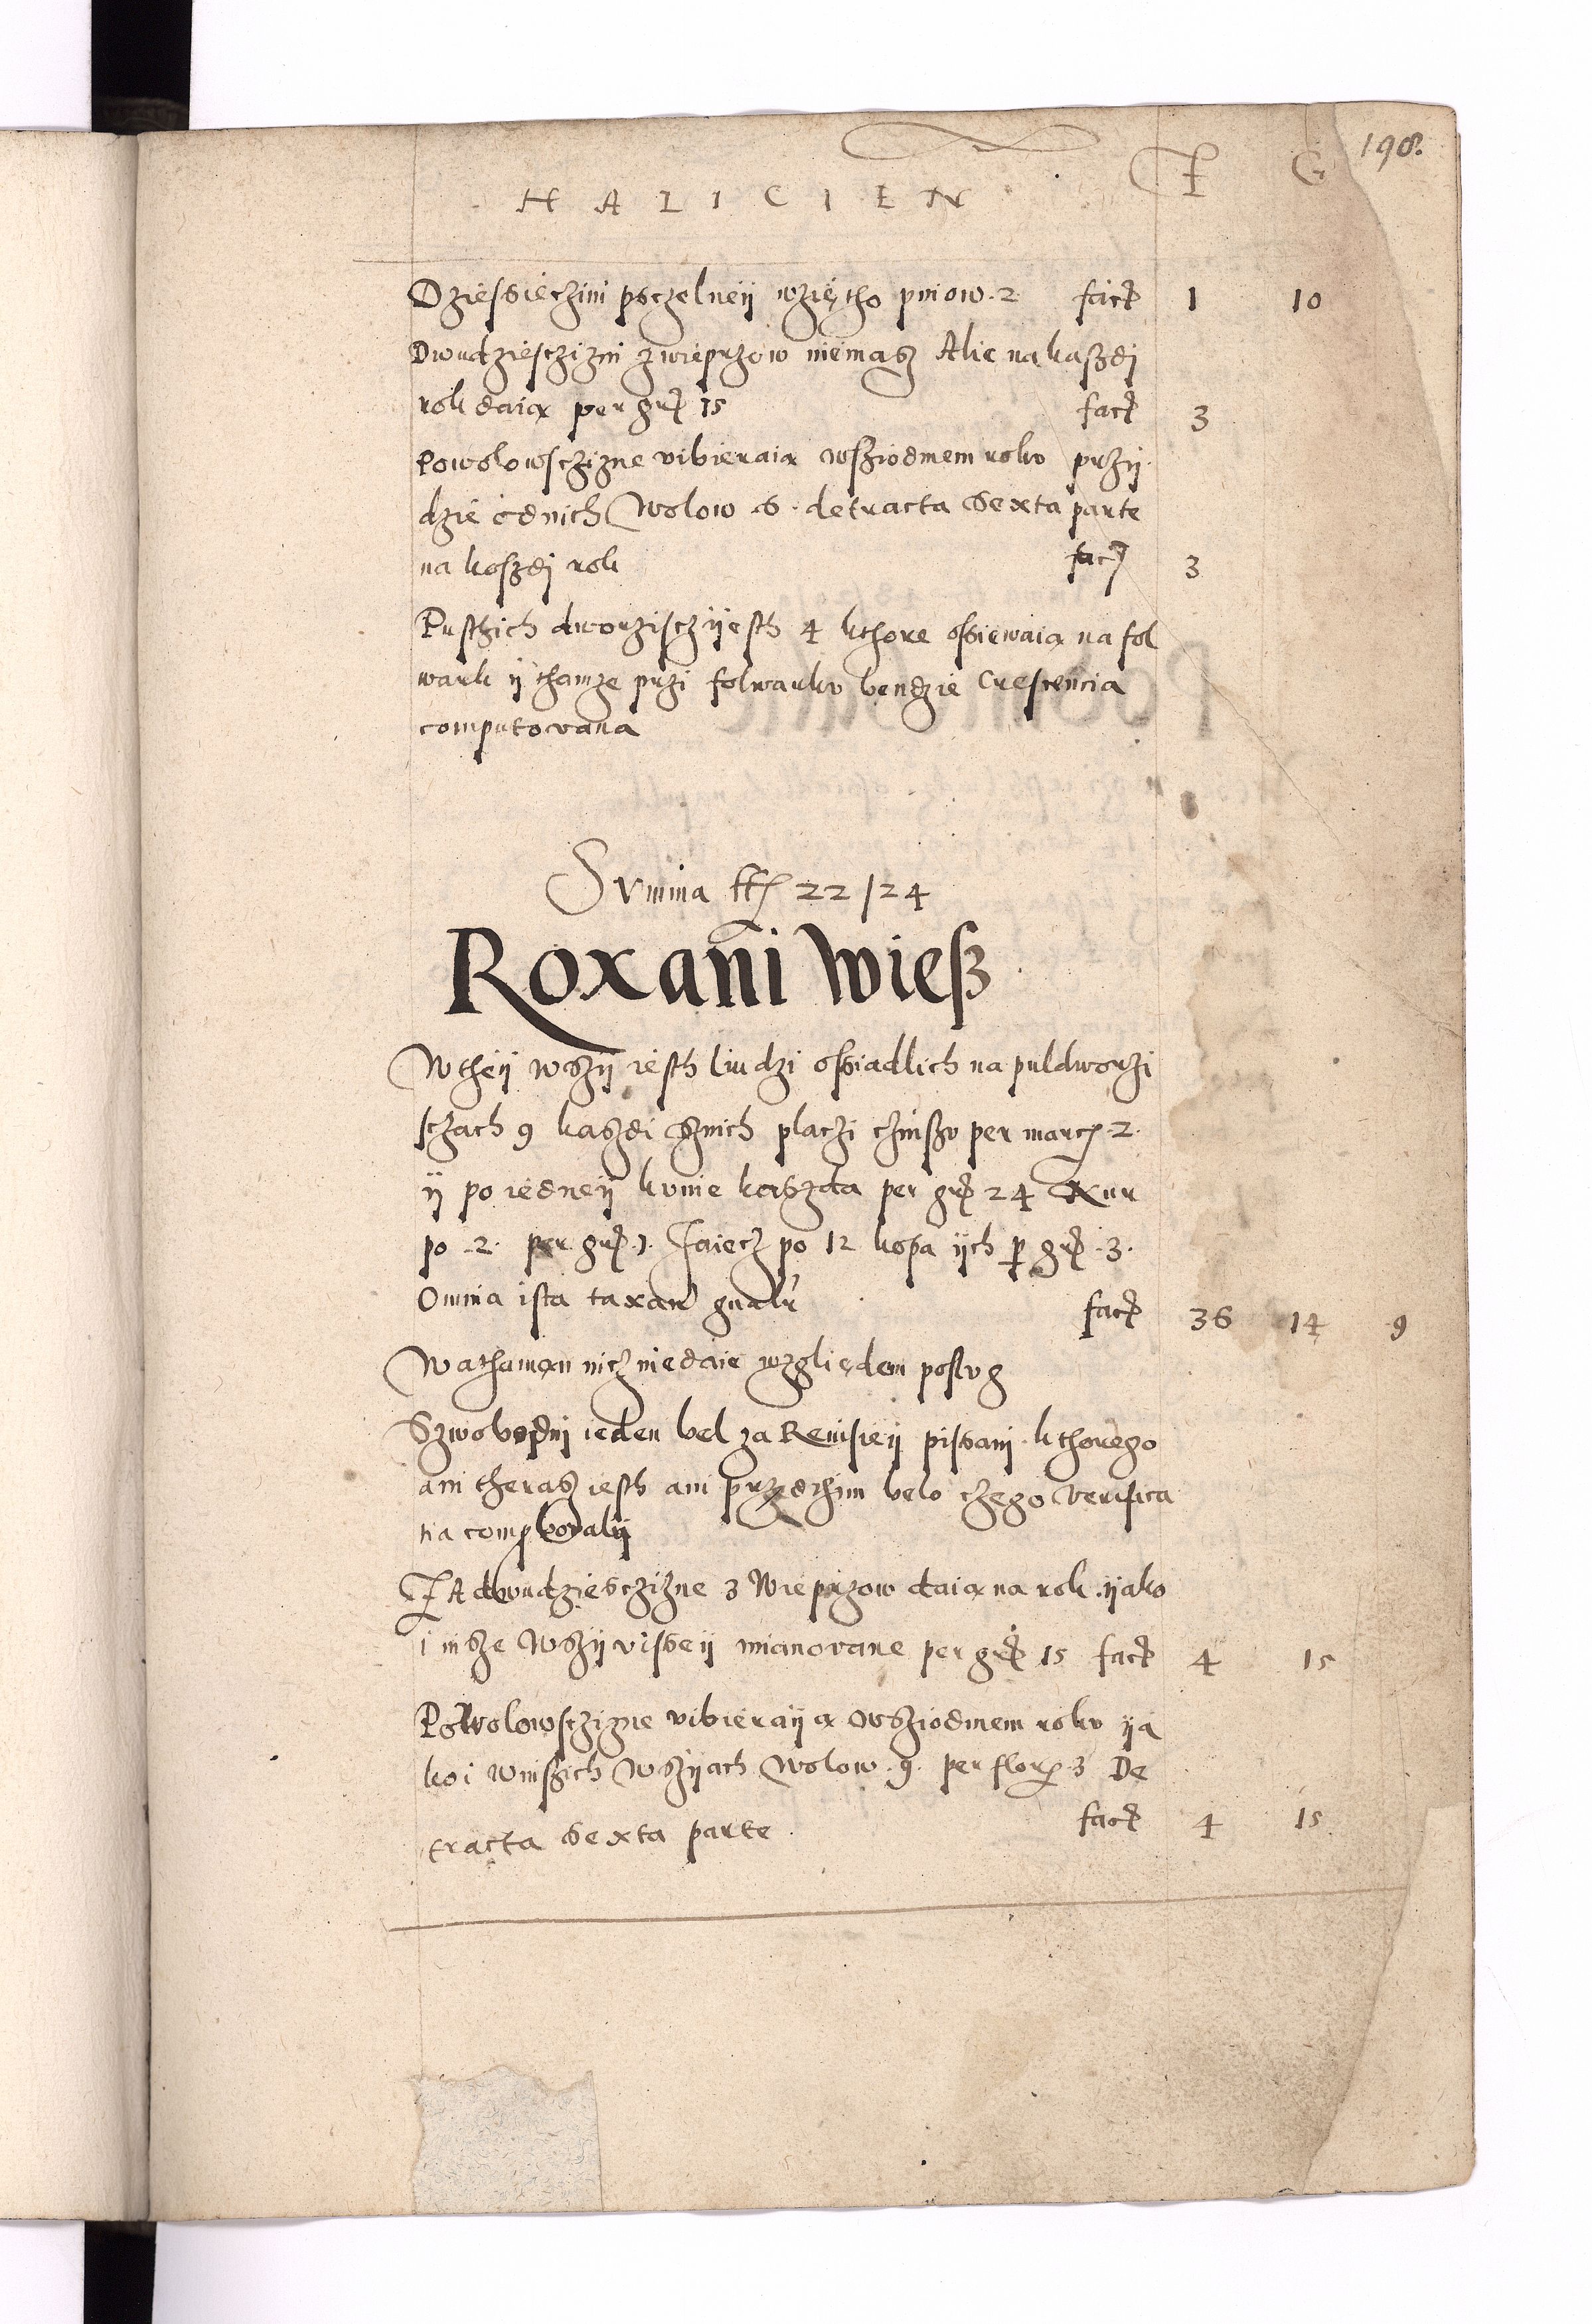 198.
HALICIEN F G
Dziesięczini psczolneÿ wzięctho pniow 2 facit 1 10
Dwudziesczizni zwieprzow niemasz Alie na kaszdi
rok daią per grs 15 facit 3
Powolowsczizne vibieraią wsziodmem roku przÿ
dzie odnich Wolow 6 detracta Sexta parte
na koszdi rok facit 3
Pustzich dworziscz ÿesth 4 kthore ossiewaią na fol
wark ÿ thamze przi folwarku bendzie Crescencia
computowana
Summa ff 22/24
Roxani wiesz
Wtheÿ wszÿ iesth liudzi ossiadlich na puldworzi
sczach 9 kaszdi sznich placzi czinszu per marc 2
ÿ po iedneÿ kunie kaszda per grs 24 Kur
po 2 per grs 1 Jaiecz po 12 kopa ÿch per grs 3
Omnia ista taxantur facit 36 14 9
Wathaman nicz niedaie wzgliędem poslug
Szwobodni ieden bel za Reuisieÿ pissani kthorego
ani therasz iesth ani przedthim belo czego verifica
tia comprobovalÿ
ZA dwudziesczizne 3 Wieprzow daią na rok ÿako
i insze Wszÿ visseÿ mianovane per grs 15 facit 4 15
Powolowsczizne vibieraÿą wsziodmem roku ÿa
ko i winszich Wszÿach Wolow 9 per flor 3 De
tracta Sexta parte facit 4 15